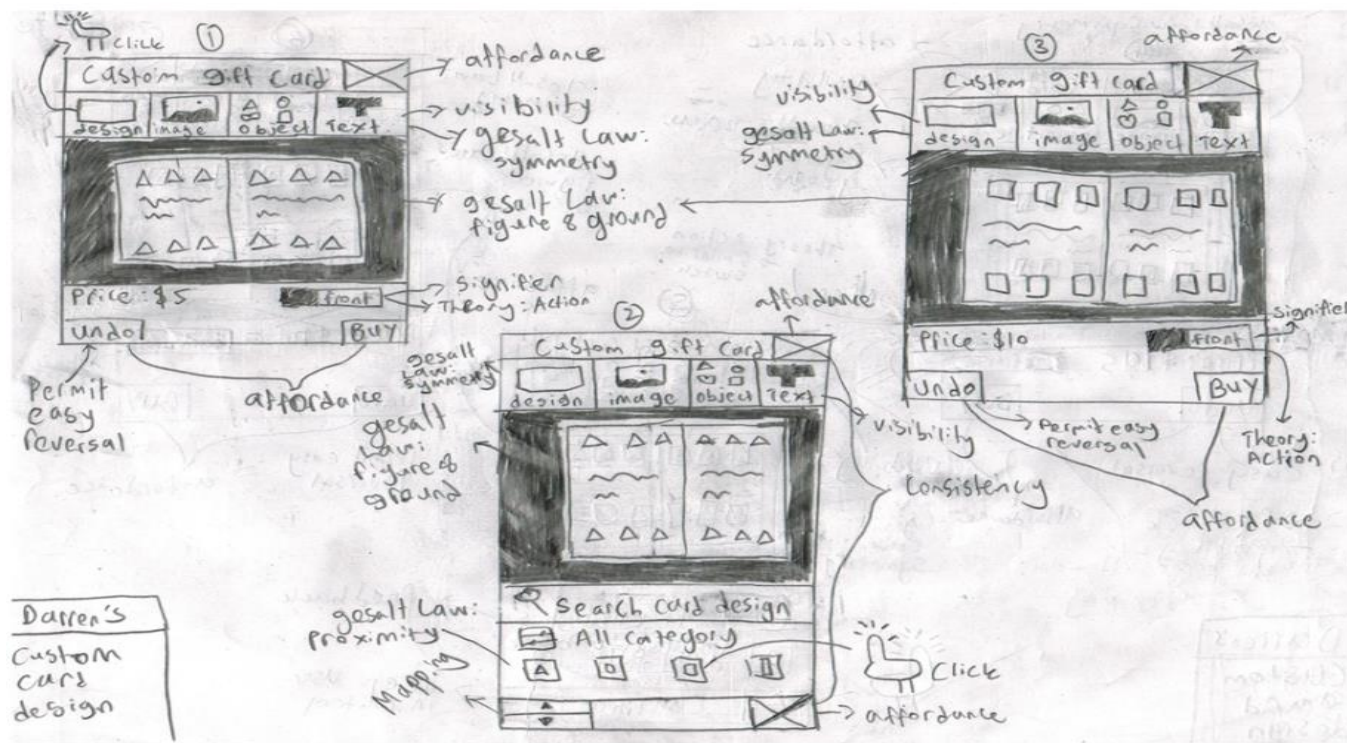 click
①
Custom gift card
affordance
design
image
object
Text
visibility
gesalt Law:
symmetry
gesalt Law:
figure & ground
Price: $5
front
signifier
Theory: Action
undo
BUY
Permit
easy
reversal
affordance
②
affordance
Custom gift card
gesalt
Law:
symmetry
design
image
object
Text
visibility
gesalt
Law:
figure &
ground
Consistency
Search card design
gesalt Law:
proximity
All category
Click
Mapping
affordance
③
affordance
Custom gift card
visibility
gesalt Law:
symmetry
design
image
object
Text
Price: $10
front
signifier
undo
BUY
Permit easy
reversal
Theory:
Action
affordance
Darren's
Custom
card
design